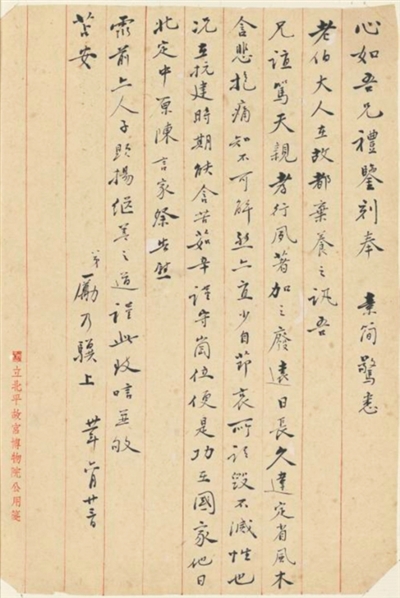 心如吾兄禮鑒别奉 素簡驚悉
老伯大人在故都棄養之訊吾
兄誼篤天親孝行夙著加之 遠日長久違定省風木
含悲抱痛知不可解 亦宜少自節哀所謂毀不滅性也
况在抗建時期能含苦茹辛謹守崗位便是功在國家他日
北定中原陳言家祭告慰
靈前亦人子顯揚繼善之道謹此敬唁並敬
苫安
弟勵乃驥上 月廿 日
國立北平故宮博物院公用箋